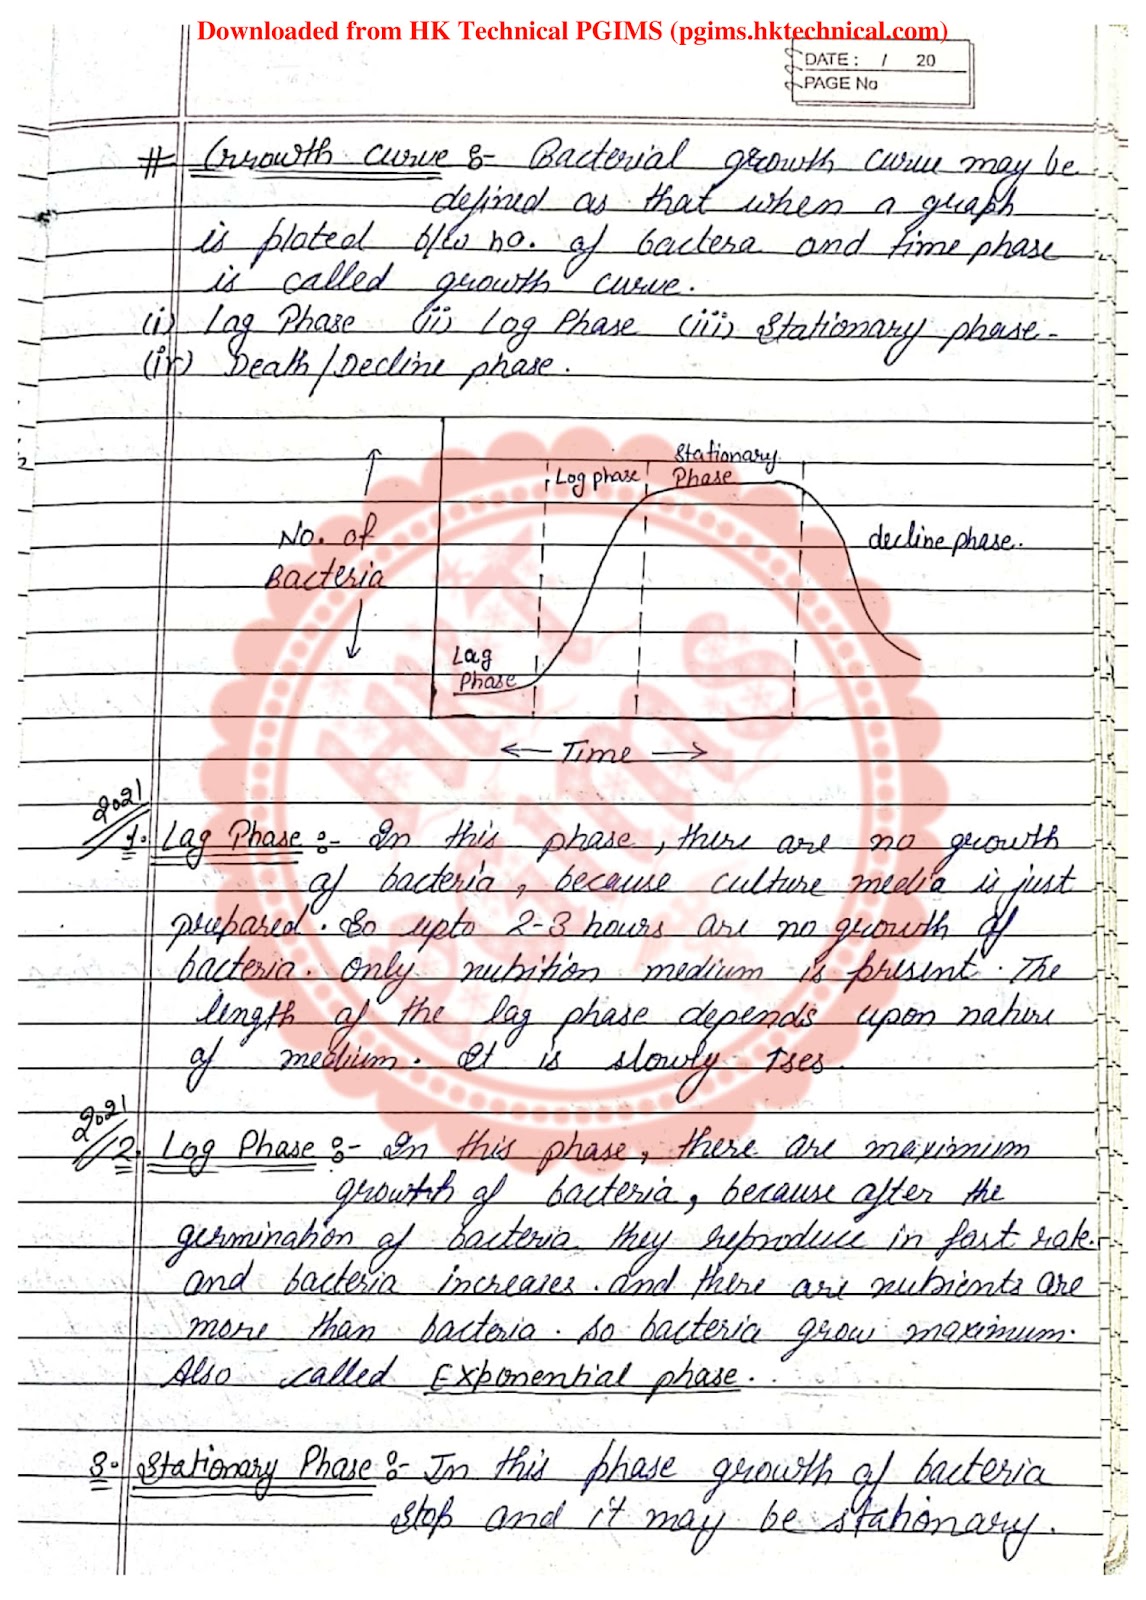 Downloaded from HK Technical PGIMS (pgims.hktechnical.com)
DATE : / 20
PAGE No
# Growth curve :- Bacterial growth curve may be
defined as that when a graph
is ploted b/w no. of bactera and time phase
is called growth curve.
(i) Lag Phase (ii) Log Phase (iii) Stationary phase-
(iv) Death/Decline phase.
Stationary
Log phase Phase
No. of
Bacteria
decline phase.
Lag
Phase
Time
HKT
PGIMS
2021
1. Lag Phase :- In this phase, there are no growth
of bacteria, because culture media is just
prepared. So upto 2-3 hours are no growth of
bacteria. only nutrition medium is present. The
length of the lag phase depends upon nature
of medium. It is slowly
2021
2. Log Phase :- In this phase, there are maximum
growth of bacteria, because after the
germination of bacteria they reproduce in fast rate.
and bacteria increases. and there are nutrients are
more than bacteria. So bacteria grow maximum.
Also called Exponential phase.
3. Stationary Phase :- In this phase growth of bacteria
stop and it may be stationary.